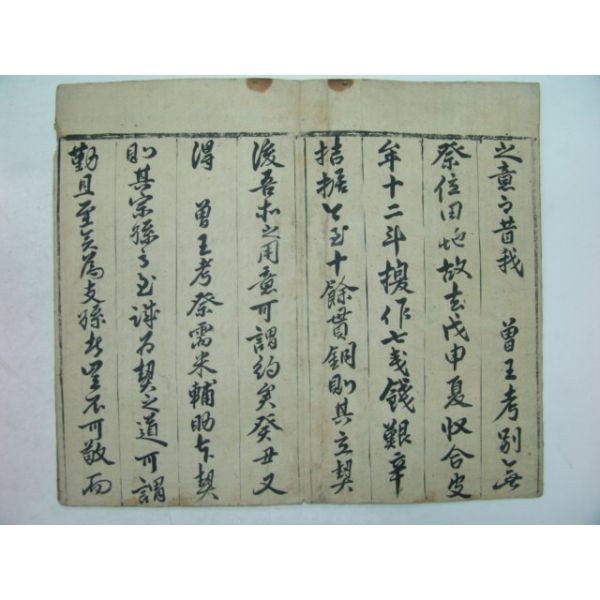 之意而昔我 曾王考別無
祭位田地故去戊申夏收合皮
牟十二斗換作七戔錢艱辛
拮据今至十餘貫銅則其立契
後吾未之用意可謂約矣癸丑又
得 曾王考祭需米輔助本契
則其宗孫之至誠爲契之道可謂
勤且至矣爲支孫者豈不可敬而